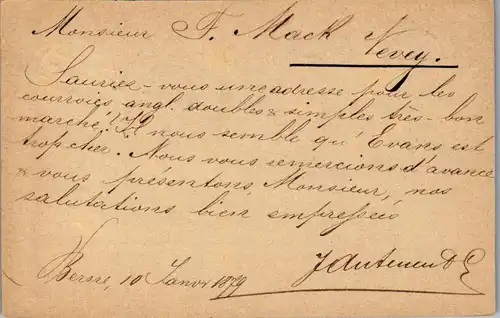 Monsieur F. Mack
Vevey.
Sauriez-vous une adresse pour les
courroies angl. doubles & simples très-bon
marché? Il nous semble qu'Evans est
trop cher. Nous vous remercions d'avance
& vous présentons, Monsieur, nos
salutations bien empressées
Berne, 10 Janvr 1879